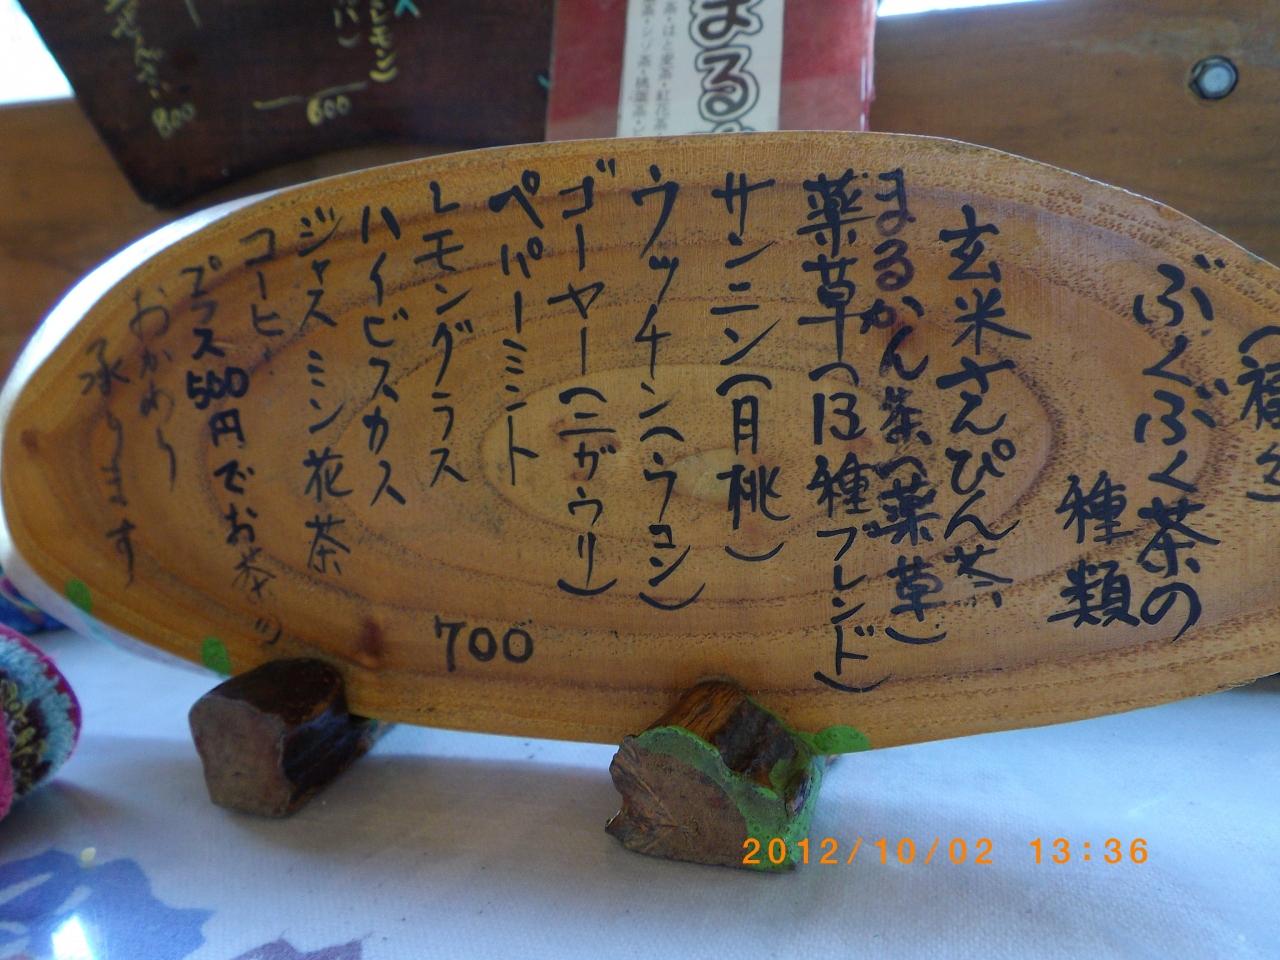 ぶくぶく茶の
種類
玄米さんぴん茶
まるかん茶(薬草)
薬草(13種ブレンド)
サンニン(月桃)
ウッチン(ウコン)
ゴーヤー(ニガウリ)
ペパーミント
レモングラス
ハイビスカス
ジャスミン花茶
コーヒー
700
プラス500円でお茶の
おかわり
承ります
600
800
まる
2012/10/02 13:36